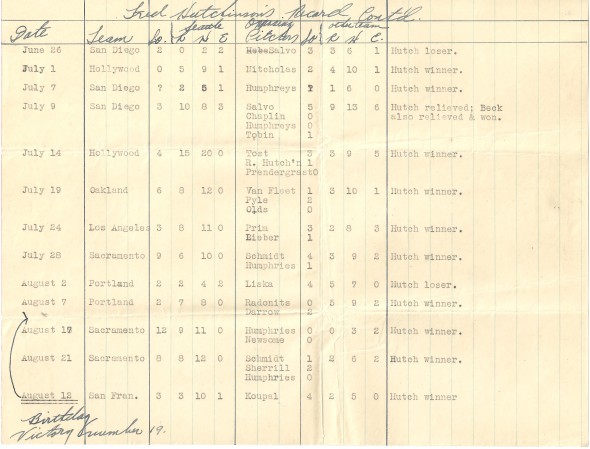 Fred Hutchinson's Record Cont'd.
Seattle Opposing other team
Date Team So. R H E Pitchers So R H E.
June 26 San Diego 2 0 2 2 Salvo 3 3 6 1 Hutch loser.
July 1 Hollywood 0 5 9 1 Nitcholas 2 4 10 1 Hutch winner.
July 7 San Diego ? 2 5 1 Humphreys ? 1 6 0 Hutch winner.
July 9 San Diego 3 10 8 3 Salvo 5 9 13 6 Hutch relieved; Beck
Chaplin 0 also relieved & won.
Humphreys 0
Tobin 1
July 14 Hollywood 4 15 20 0 Tost 3 3 9 5 Hutch winner.
R. Hutch'n 1
Prendergrast0
July 19 Oakland 6 8 12 0 Van Fleet 1 3 10 1 Hutch winner.
Pyle 2
Olds 0
July 24 Los Angeles 3 8 11 0 Prim 3 2 8 3 Hutch winner.
Lieber 1
July 28 Sacramento 9 6 10 0 Schmidt 4 3 9 2 Hutch winner.
Humphries 1
August 2 Portland 2 2 4 2 Liska 4 5 7 0 Hutch loser.
August 7 Portland 2 7 8 0 Radonits 0 3 9 2 Hutch winner.
Darrow 2
August 17 Sacramento 12 9 11 0 Humphries 0 0 3 2 Hutch winner.
Newsome 0
August 21 Sacramento 8 8 12 0 Schmidt 1 2 6 2 Hutch winner.
Sherrill 2
Humphries 0
August 12 San Fran. 3 3 10 1 Koupal 4 2 5 0 Hutch winner
Birthday
Victory number 19.